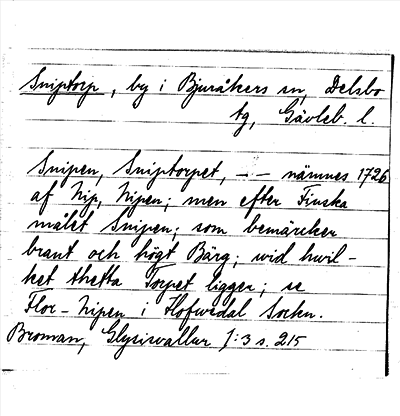 Sniptorp, by i Bjuråkers sn, Delsbo
tg, Gävleb. l.
Snipen, Sniptorpet, – – nämnes 1726
af Nip, Nipen; men efter Finska
målet Snipen; som bemärcker
brant och högt Bärg; wid hwil-
ket thetta Torpet ligger; se
Flor-Nipen i Hofwedal Sockn.
Broman, Glysisvallur I:3 s. 215